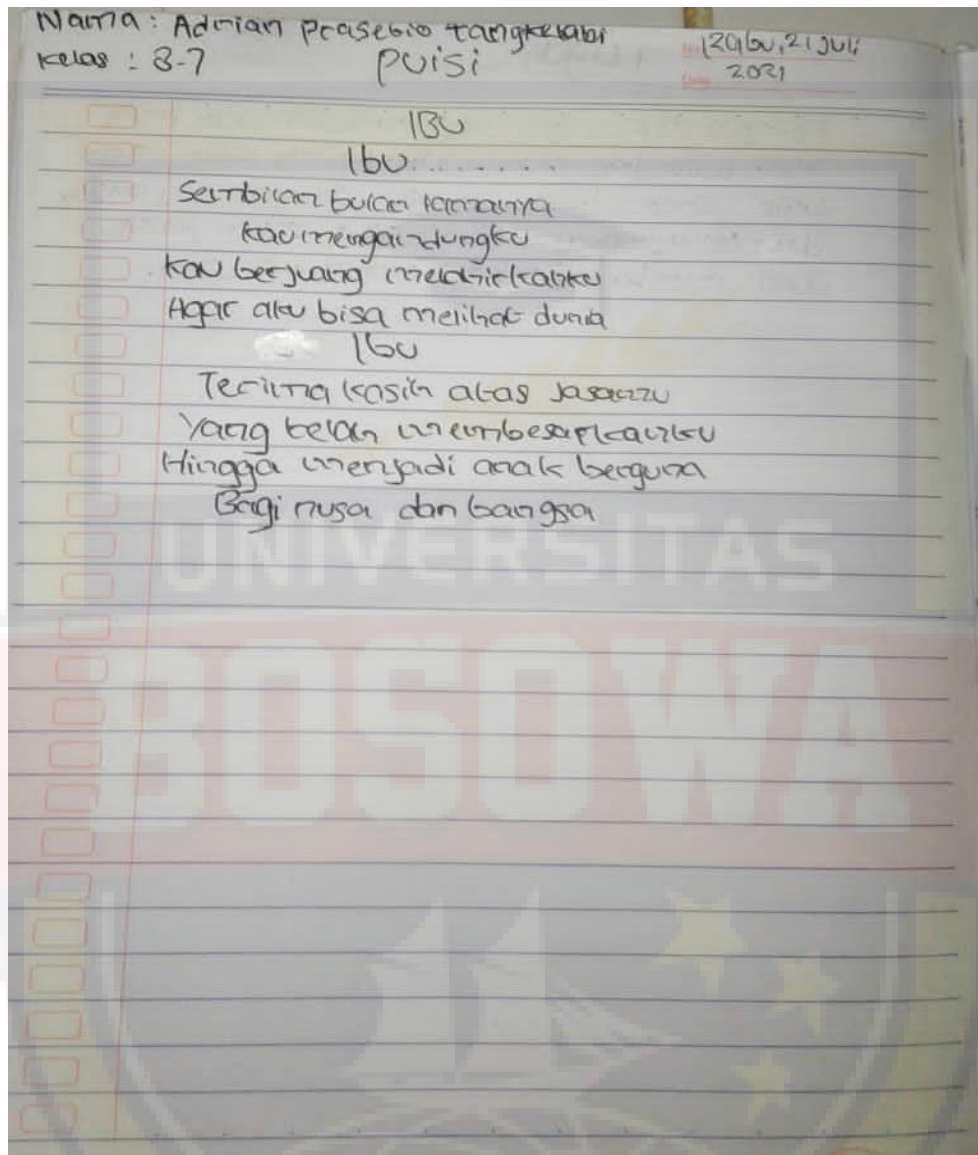 Nama : Adrian Prasetio tangkelabi
Kelas : 8-7
Puisi
Rabu, 21 Juli
2021
IBU
Ibu.......
Sembilan bulan lamanya
Kau mengandungku
Kau berjuang melahirkanku
Agar aku bisa melihat dunia
Ibu
Terima kasih atas jasamu
Yang telah membesarkanku
Hingga menjadi anak berguna
Bagi nusa dan bangsa
UNIVERSITAS
BOSOWA